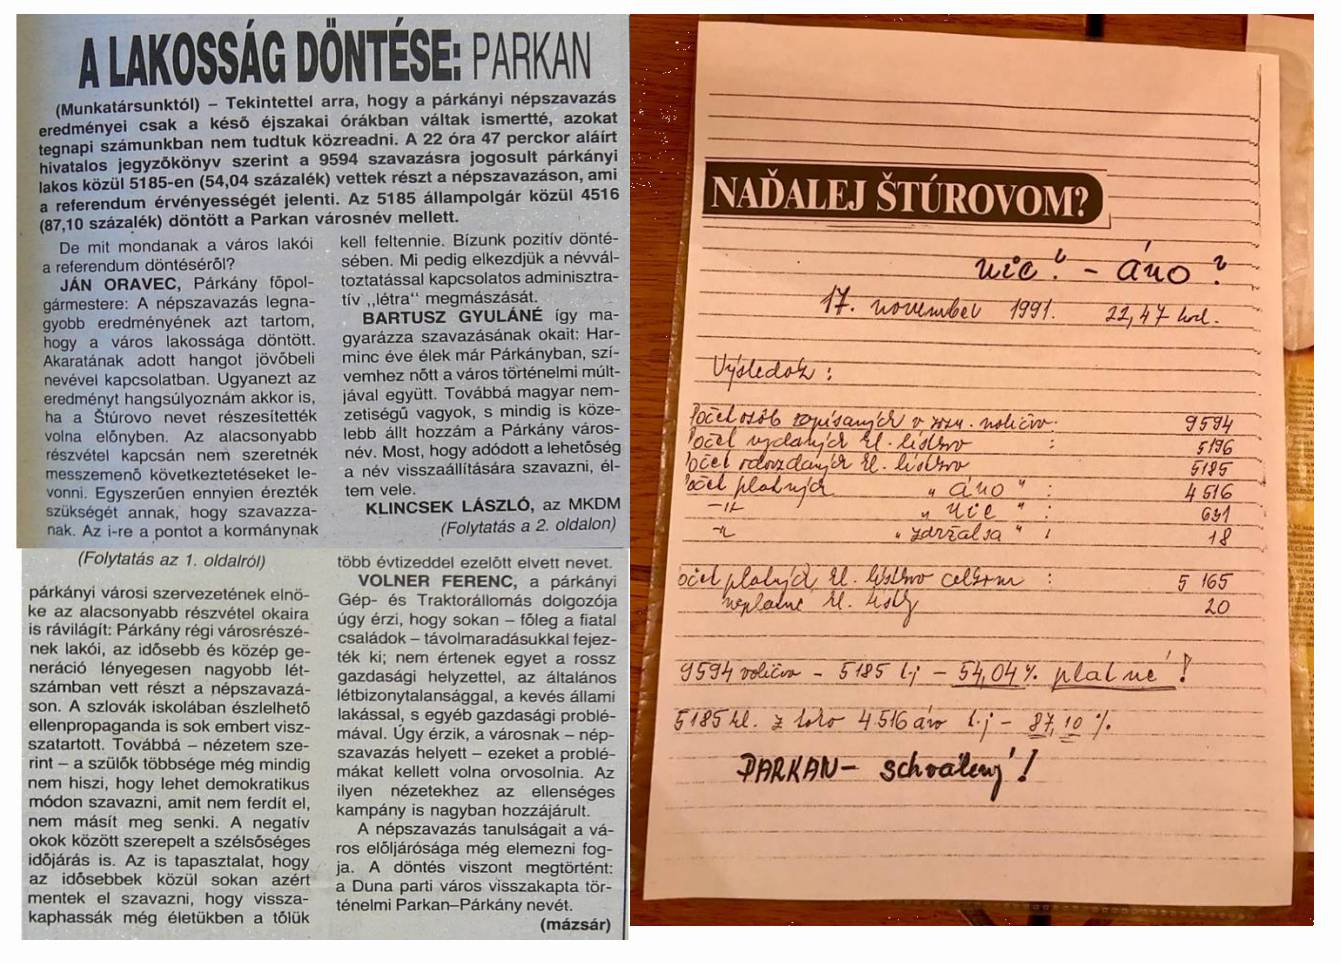 A LAKOSSÁG DÖNTÉSE: PARKAN
(Munkatársunktól) – Tekintettel arra, hogy a párkányi népszavazás
eredményei csak a késő éjszakai órákban váltak ismertté, azokat
tegnapi számunkban nem tudtuk közreadni. A 22 óra 47 perckor aláírt
hivatalos jegyzőkönyv szerint a 9594 szavazásra jogosult párkányi
lakos közül 5185-en (54,04 százalék) vettek részt a népszavazáson, ami
a referendum érvényességét jelenti. Az 5185 állampolgár közül 4516
(87,10 százalék) döntött a Parkan városnév mellett.
De mit mondanak a város lakói
a referendum döntéséről?
JÁN ORAVEC, Párkány főpol-
gármestere: A népszavazás legna-
gyobb eredményének azt tartom,
hogy a város lakossága döntött.
Akaratának adott hangot jövőbeli
nevével kapcsolatban. Ugyanezt az
eredményt hangsúlyoznám akkor is,
ha a Štúrovo nevet részesítették
volna előnyben. Az alacsonyabb
részvétel kapcsán nem szeretnék
messzemenő következtetéseket le-
vonni. Egyszerűen ennyien érezték
szükségét annak, hogy szavazza-
nak. Az i-re a pontot a kormánynak
kell feltennie. Bízunk pozitív dönté-
sében. Mi pedig elkezdjük a névvál-
toztatással kapcsolatos adminisztra-
tív ,,létra" megmászását.
BARTUSZ GYULÁNÉ így ma-
gyarázza szavazásának okait: Har-
minc éve élek már Párkányban, szí-
vemhez nőtt a város történelmi múlt-
jával együtt. Továbbá magyar nem-
zetiségű vagyok, s mindig is köze-
lebb állt hozzám a Párkány város-
név. Most, hogy adódott a lehetőség
a név visszaállítására szavazni, él-
tem vele.
KLINCSEK LÁSZLÓ, az MKDM
(Folytatás a 2. oldalon)
(Folytatás az 1. oldalról)
párkányi városi szervezetének elnö-
ke az alacsonyabb részvétel okaira
is rávilágít: Párkány régi városrészé-
nek lakói, az idősebb és közép ge-
neráció lényegesen nagyobb lét-
számban vett részt a népszavazá-
son. A szlovák iskolában észlelhető
ellenpropaganda is sok embert visz-
szatartott. Továbbá – nézetem sze-
rint – a szülők többsége még mindig
nem hiszi, hogy lehet demokratikus
módon szavazni, amit nem ferdít el,
nem másít meg senki. A negatív
okok között szerepelt a szélsőséges
időjárás is. Az is tapasztalat, hogy
az idősebbek közül sokan azért
mentek el szavazni, hogy vissza-
kaphassák még életükben a tőlük
több évtizeddel ezelőtt elvett nevet.
VOLNER FERENC, a párkányi
Gép- és Traktorállomás dolgozója
úgy érzi, hogy sokan – főleg a fiatal
családok – távolmaradásukkal fejez-
ték ki; nem értenek egyet a rossz
gazdasági helyzettel, az általános
létbizonytalansággal, a kevés állami
lakással, s egyéb gazdasági problé-
mával. Úgy érzik, a városnak – nép-
szavazás helyett – ezeket a problé-
mákat kellett volna orvosolnia. Az
ilyen nézetekhez az ellenséges
kampány is nagyban hozzájárult.
A népszavazás tanulságait a vá-
ros előljárósága még elemezni fog-
ja. A döntés viszont megtörtént:
a Duna parti város visszakapta tör-
ténelmi Parkan–Párkány nevét.
(mázsár)
NAĎALEJ ŠTÚROVOM?
nie? – áno?
17. november 1991. 22,47 hod.
Výsledok:
Počet osôb zapísaných v zozn. voličov: 9594
Počet vydaných hl. lístkov : 5196
Počet odovzdaných hl. lístkov 5185
Počet platných „ áno " : 4516
–"– „ nie " : 631
–"– „ zdržal sa " : 18
očet platných hl. lístkov celkom : 5 165
neplatné hl. lístky 20
9594 voličov – 5185 t.j – 54,04 % platné!
5185 hl. z toho 4516 áno t.j – 87,10 %.
PARKAN – schválený!